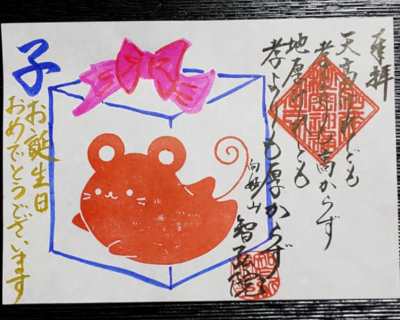 奉拝
天高けれども
孝よりも高からず
地厚けれども
孝よりも厚からず
子
お誕生日
おめでとうございます